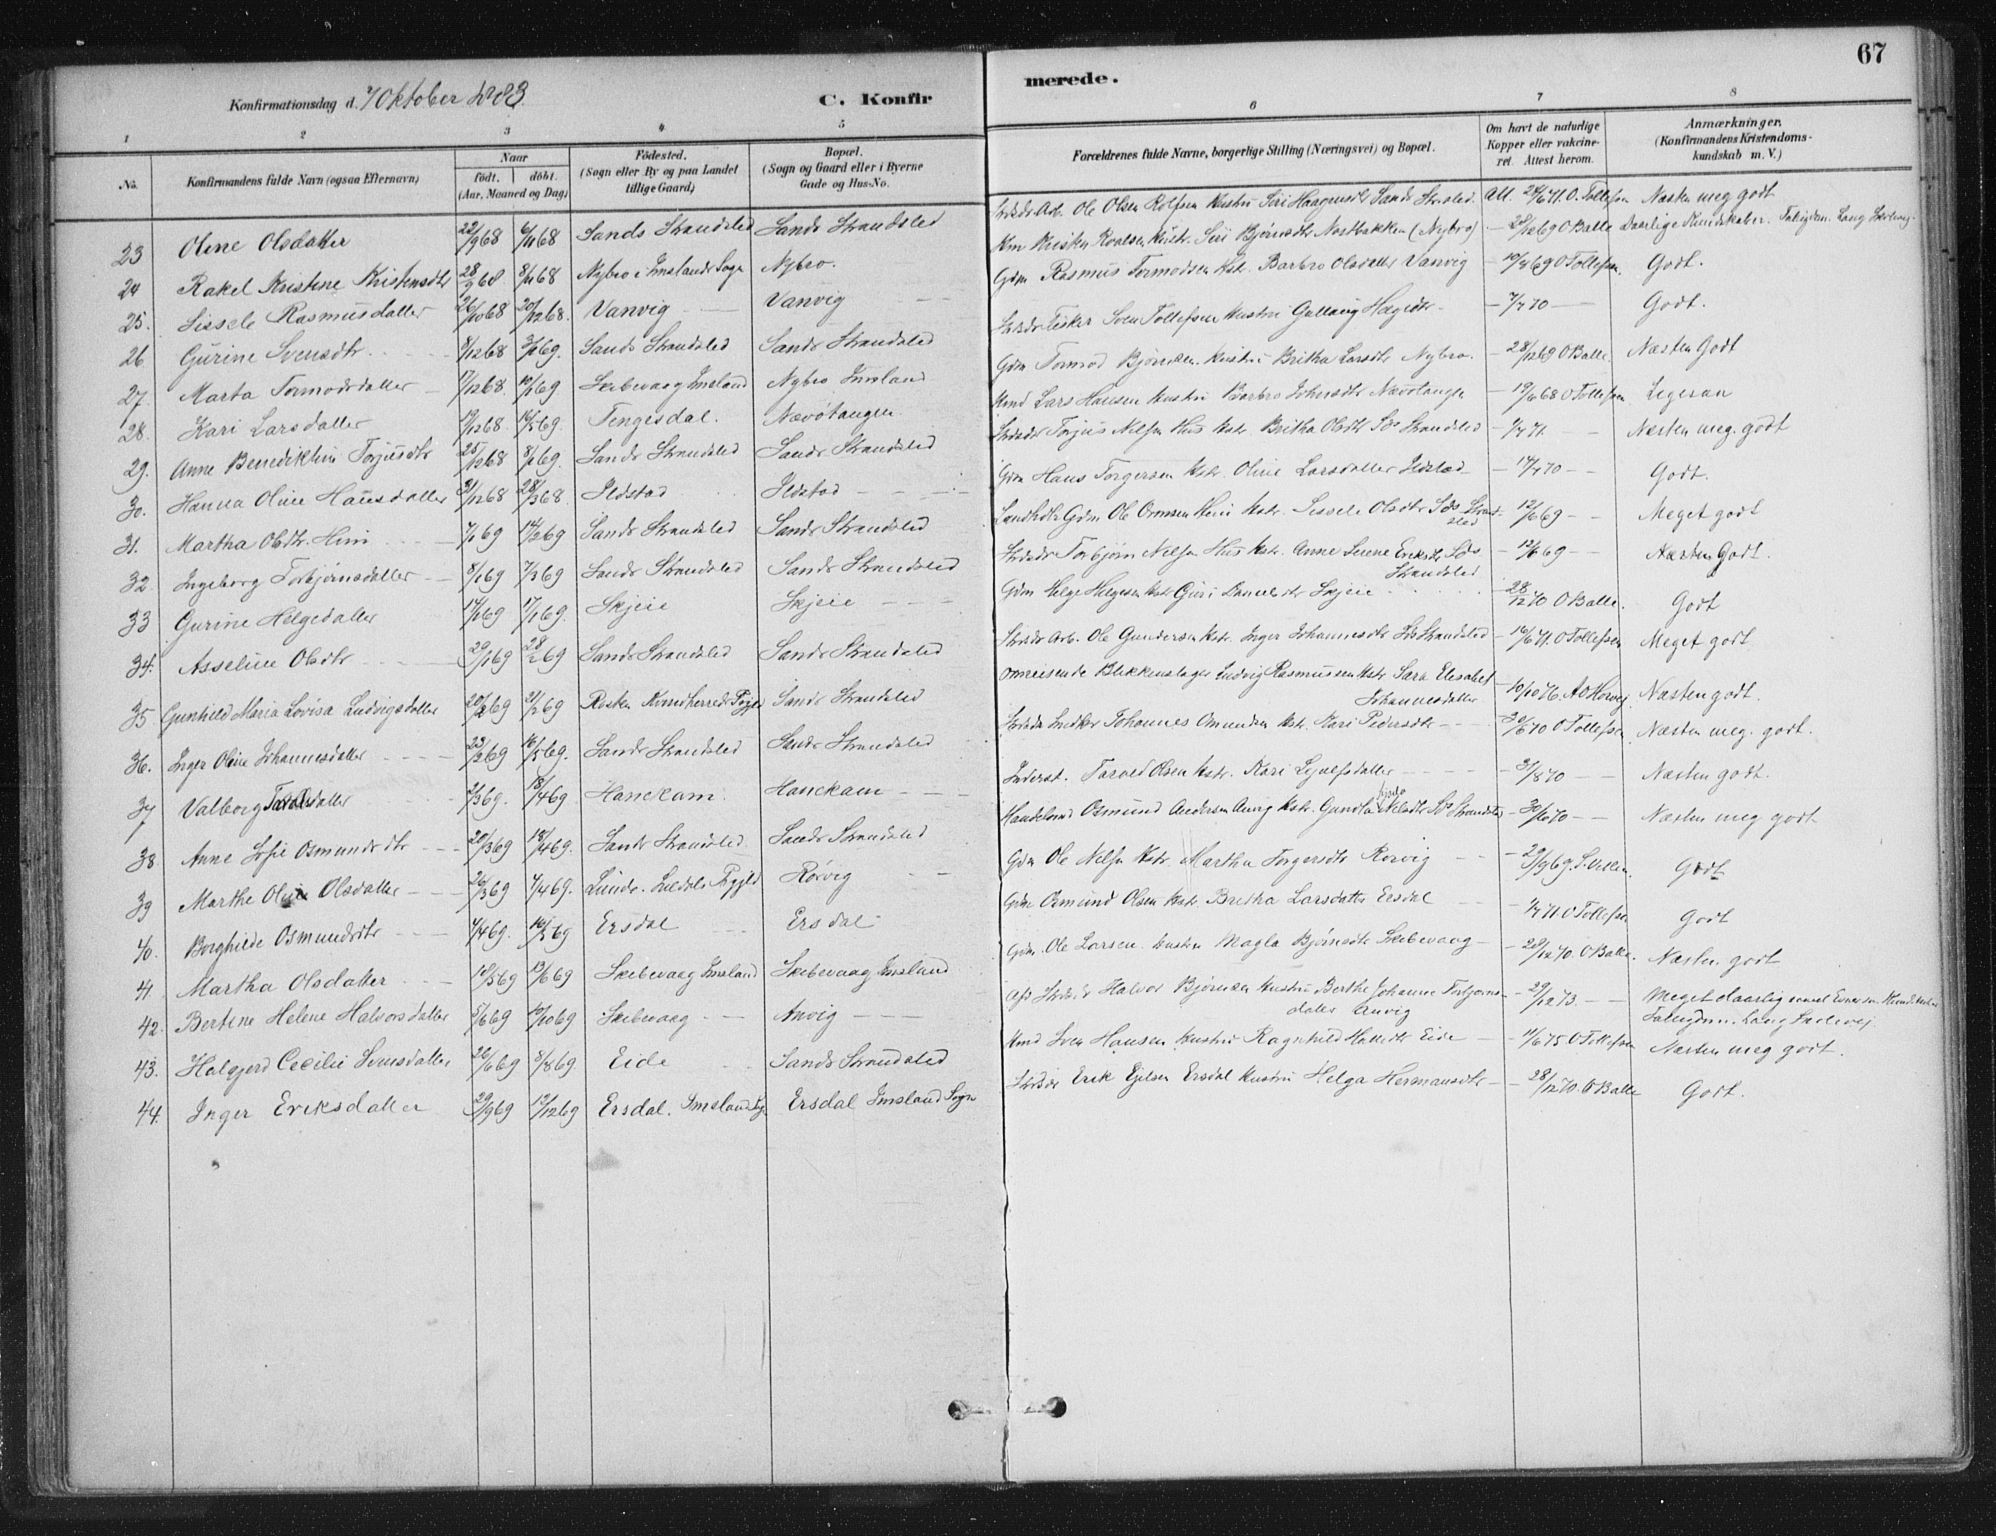 67
Konfirmationsdag d. 7 Oktober 1883. C. Konfirmerede.
1 2 3 4 5 6 7 8
No. Konfirmandens fulde Navn (ogsaa Efternavn) Naar født. døbt. (Aar, Maaned og Dag) Fødested. (Sogn eller By og paa Landet tillige Gaard) Bopæl. (Sogn og Gaard eller i Byerne Gade og Hus-No. Forældrenes fulde Navne, borgerlige Stilling (Næringsvei) og Bopæl. Om havt de naturlige Kopper eller vakcineret. Attest herom. Anmærkninger. (Konfirmandens Kristendomskundskab m. V.)
23 Olene Olsdatter 22/9 68 6/11 68 Sands Strandsted Sands Strandsted Ole Olsen Rolfsen Hustru Siri Haagensdtr Sands Strsted. Att. 24/6 71 O. Tollefsen Næsten meg godt
24 Rakel Kristine Kristensdtr 28/9 68 8/11 68 Nybro i Imslands Sogn Nybro. Kristen Roalsen Hustr. Siri Bjørnsdtr Nostbakken (Nybro) 28/12 69 O Balle Daarlige Kundskaber. Lang
25. Sissele Rasmusdatter 26/10 68 20/12 68. Vanvig Vanvig Gdm Rasmus Tormodsen Hstr. Barbro Olsdatter Vanvig O Tollefsen. Godt.
26 Gurine Svensdtr 8/12 68 Sands Strandsted Sands Strandsted Fisker Sven Tollefsen Hustru 7/7 70 Godt.
27. Marta Tormodsdatter 17/12 68. 10/1 69 Imsland Nybro Imsland Gdm Tormod Bjørnsen Hustru Britha Larsdtr Nybro. 28/12 69 O Balle Næsten Godt
28. Kari Larsdatter 19/12 68. 16/5 69. Tengesdal. Nævøtangen Lars Hansen Hustru Barbro Johnsdtr Nævøtangen 19/6 68 O Tollefsen Ligesaa
29. Anne Benediktine Torjusdtr 25/12 68 8/1 69. Sands Strandsted Sands Strandsted Torjus Nelsen Hus Hstr. Britha Olsdtr Sds Strandsted 1/7 71. Næsten meg. godt
30. Hanna Oline Hansdatter 31/12 68 28/3 68. Ildstad Ildstad Gdm Hans Torgersen Hstr. Oline Larsdatter Ildstad 17/7 70 Godt.
31. Martha Olsdtr. Hiim 7/1 69 14/2 69 Sands Strandsted Sands Strandsted Gdm Ole Ormsen Hiim Hstr. Sissele Olsdtr Sds Strandsted 12/6 69 Meget godt
32. Ingeborg Torbjørnsdatter 8/1 69 7/3 69 Sands Strandsted Sands Strandsted Torbjørn Nelsen Hus Hstr. Anne Eriksdtr Sds Strandsted 12/6 69 Næsten Godt.
33 Gurine Helgedatter Skjeie Skjeie Gdm Helge Helgesen Hstr Guri Danielsdtr Skjeie 28/12 70 O Balle. Godt
34. Asseline Olsdtr 29/1 69 28/2 69 Sands Strandsted Sands Strandsted Strdsdr Arb. Ole Gundersen Hstr. Inger Johannesdtr Sds Strandsted 16/6 71. O Tollefsen Meget godt
35 Gunhild Maria Lovisa Ludvigsdatter 20/2 69 21/2 69 Kvindherreds Prgjld Sands Strandsted omreisende Blikkenslager Ludvig Rasmussen Hstr Sara Elisabet Johannesdatter 10/10 76. Næsten godt.
36. Inger Oline Johannesdatter 23/2 69 16/5 69. Sands Strandsted Sands Strandsted Snedker Johannes Omundsen Hstr. Kari Pedersdtr 30/6 70 O Tollefsen Næsten meg. godt.
37 Valborg Tarvedatter 2/3 69. 18/4 69. Hanekam. Hanekam Inderst. Tarved Olsen Hstr. Kari Lejulfsdatter 31/8 70 Næsten godt.
38 Anne Sofie Osmundsdtr 20/3 69 18/4 69. Sands Strandsted Sands Strandsted Osmund Andersen Hstr. Sds Strandsted 30/6 70 Næsten meg godt
39 Marthe Oline Olsdatter 26/3 69 4/4 69. Lunde. Suldals Prgjld Rørvig Gdm Ole Nelsen Hstr. Martha Torgersdtr Rørvig 29/9 69. Godt
40. Borghilde Osmundsdtr 4/4 69. 16/5 69 Ersdal Ersdal Gdm Osmund Olsen Hstr Britha Larsdatter Ersdal 1/7 71. O Tollefsen Godt
41 Martha Olsdatter 10/5 69 13/6 69 Skibevaag Imsland Skibevaag Imsland Gdm. Ole Larsen Hustru Magla Bjørnsdtr Skibevaag 28/12 70. O Balle. Næsten godt
42. Bertine Helene Halvorsdatter 5/6 69 10/10 69 Skibevaag Anvig Halvor Bjørnsen Hustru Berthe Johanne Torbjørnsdatter Anvig 29/12 73. Meget daarlig Lang
43. Halgjerd Cecilie Svensdatter 26/6 69 8/8 69. Eide Sands Strandsted Sven Hansen Hustru Ragnhild Eide 11/6 75 O Tollefsen Næsten meg godt.
44. Inger Eriksdatter 29/9 69 19/12 69 Ersdal. Imsland Sg. Ersdal Imsland Sogn Erik Ejelsen Ersdal Hustru Helga Hermansdtr 28/12 70. O Balle Godt.